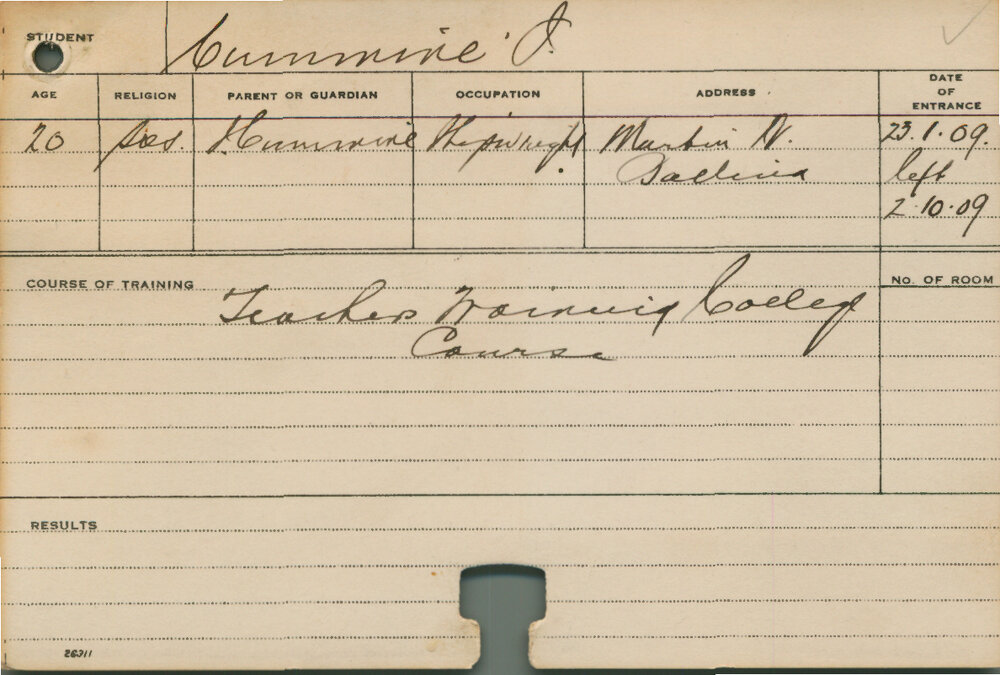 STUDENT Cummine J.
AGE RELIGION PARENT OR GUARDIAN OCCUPATION ADDRESS DATE OF ENTRANCE
20 Pres. Cummine Shipwright Martin St. 23.1.09.
Ballina left
2.10.09
COURSE OF TRAINING Teachers Training College No. OF ROOM
Course
RESULTS
26311